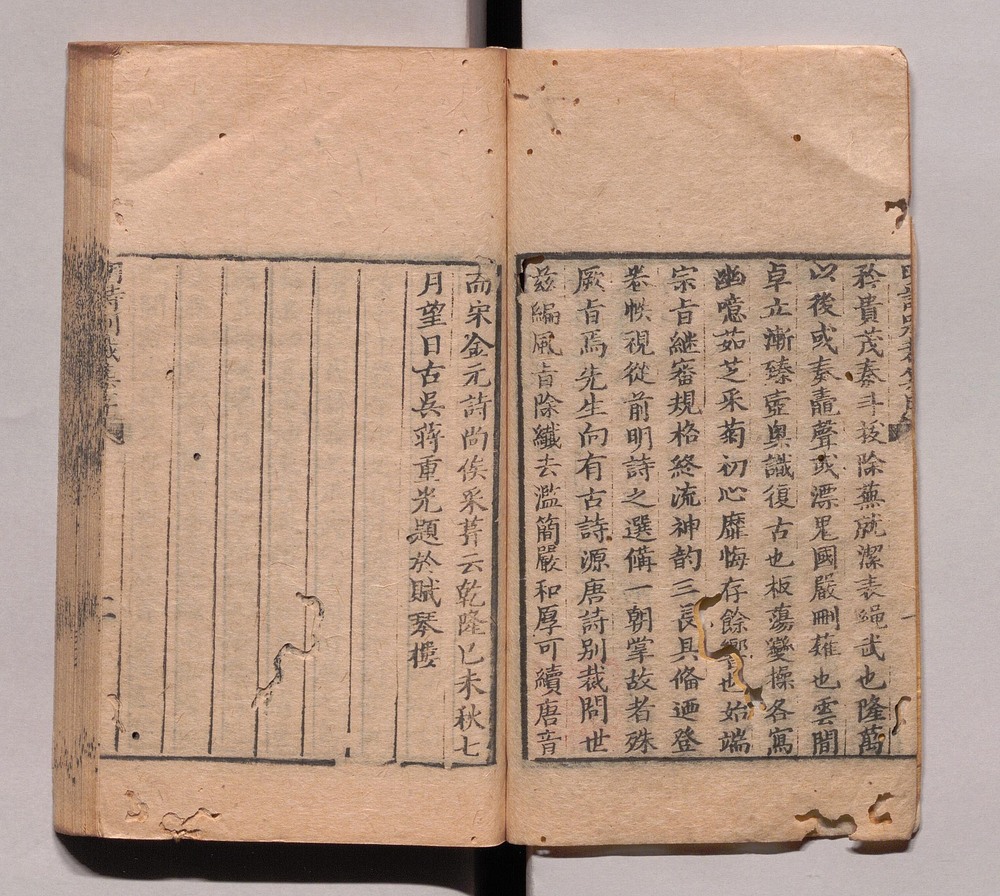 矜貴茂秦斗拔除蕪就潔表繩武也隆萬
以後或奏鼃聲或漂鬼國嚴刪薙也雲間
卓立漸臻壼奧識復古也板蕩變操各寫
幽噫茹芝采菊初心靡悔存餘響也始端
宗旨繼審規格終流神韵三長具俻迺登
卷帙視從前明詩之選俻一朝掌故者殊
厥旨焉先生向有古詩源唐詩別裁問世
茲編風旨除纖去濫簡嚴和厚可續唐音
而宋金元詩尚俟采葊云乾隆己未秋七
月望日古吳蔣重光題於賦琴樓
明詩別裁集序
二